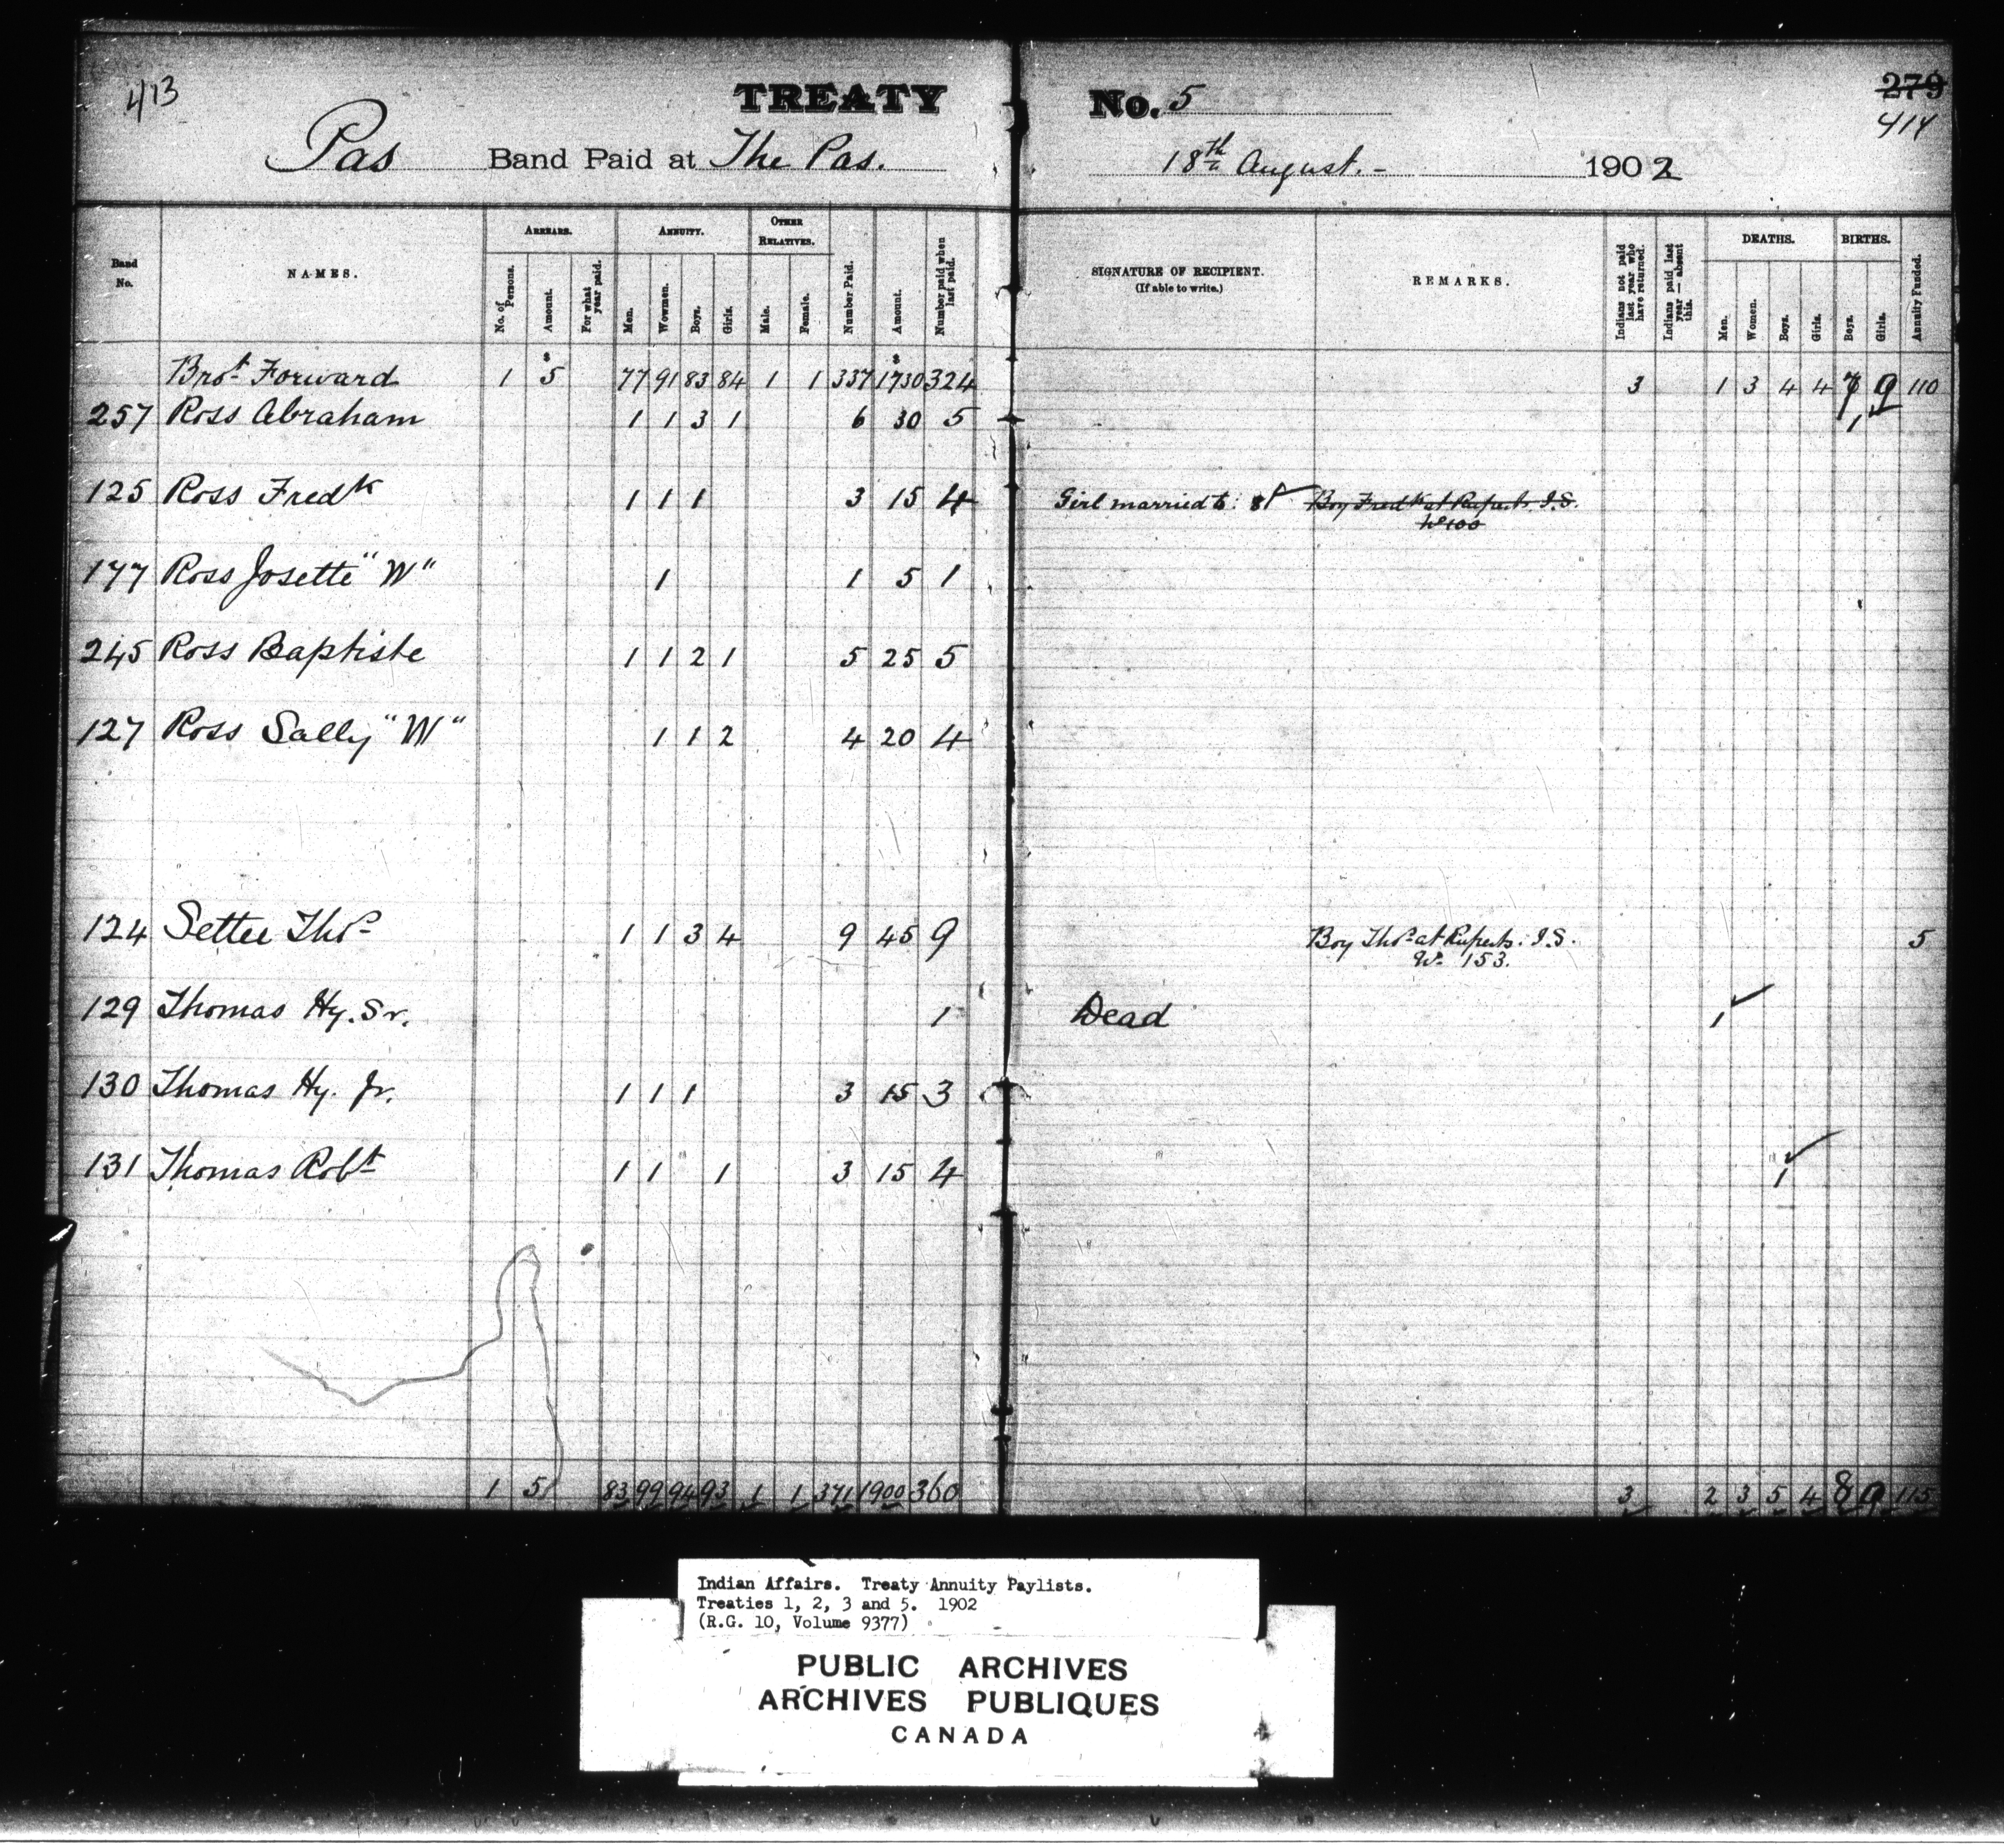 413
TREATY No. 5
279
414
Pas Band Paid at The Pas. 18th August. - 1902
Band No.
NAMES.
ARREARS.
No. of Persons.
Amount.
For what year paid.
ANNUITY.
Men.
Wowmen.
Boys.
Girls.
OTHER RELATIVES.
Male.
Female.
Number Paid.
Amount.
Number paid when last paid.
SIGNATURE OF RECIPIENT.
(If able to write.)
REMARKS.
Indians not paid last year who have returned.
Indians paid last year — absent this.
DEATHS.
Men.
Women.
Boys.
Girls.
BIRTHS.
Boys.
Girls.
Annuity Funded.
Brot Forward 1 $5 77 91 83 84 1 1 337 $1730 324 3 1 3 4 4 7 9 110
257 Ross Abraham 1 1 3 1 6 30 5 1
125 Ross Fredk 1 1 1 3 15 4 Girl married to: 81 Boy Fredk at Ruperts. I.S.
No 100
177 Ross Josette "W" 1 1 5 1
245 Ross Baptiste 1 1 2 1 5 25 5
127 Ross Sally "W" 1 1 2 4 20 4
124 Settee Thos 1 1 3 4 9 45 9 Boy Thos at Ruperts. I.S. 5
No 153.
129 Thomas Hy. Sr. 1 Dead 1
130 Thomas Hy. Jr. 1 1 1 3 15 3
131 Thomas Robt 1 1 1 3 15 4 1
1 5 83 99 94 93 1 1 371 1900 360 3 2 3 5 4 8 9 115
Indian Affairs. Treaty Annuity Paylists.
Treaties 1, 2, 3 and 5. 1902
(R.G. 10, Volume 9377)
PUBLIC ARCHIVES
ARCHIVES PUBLIQUES
CANADA